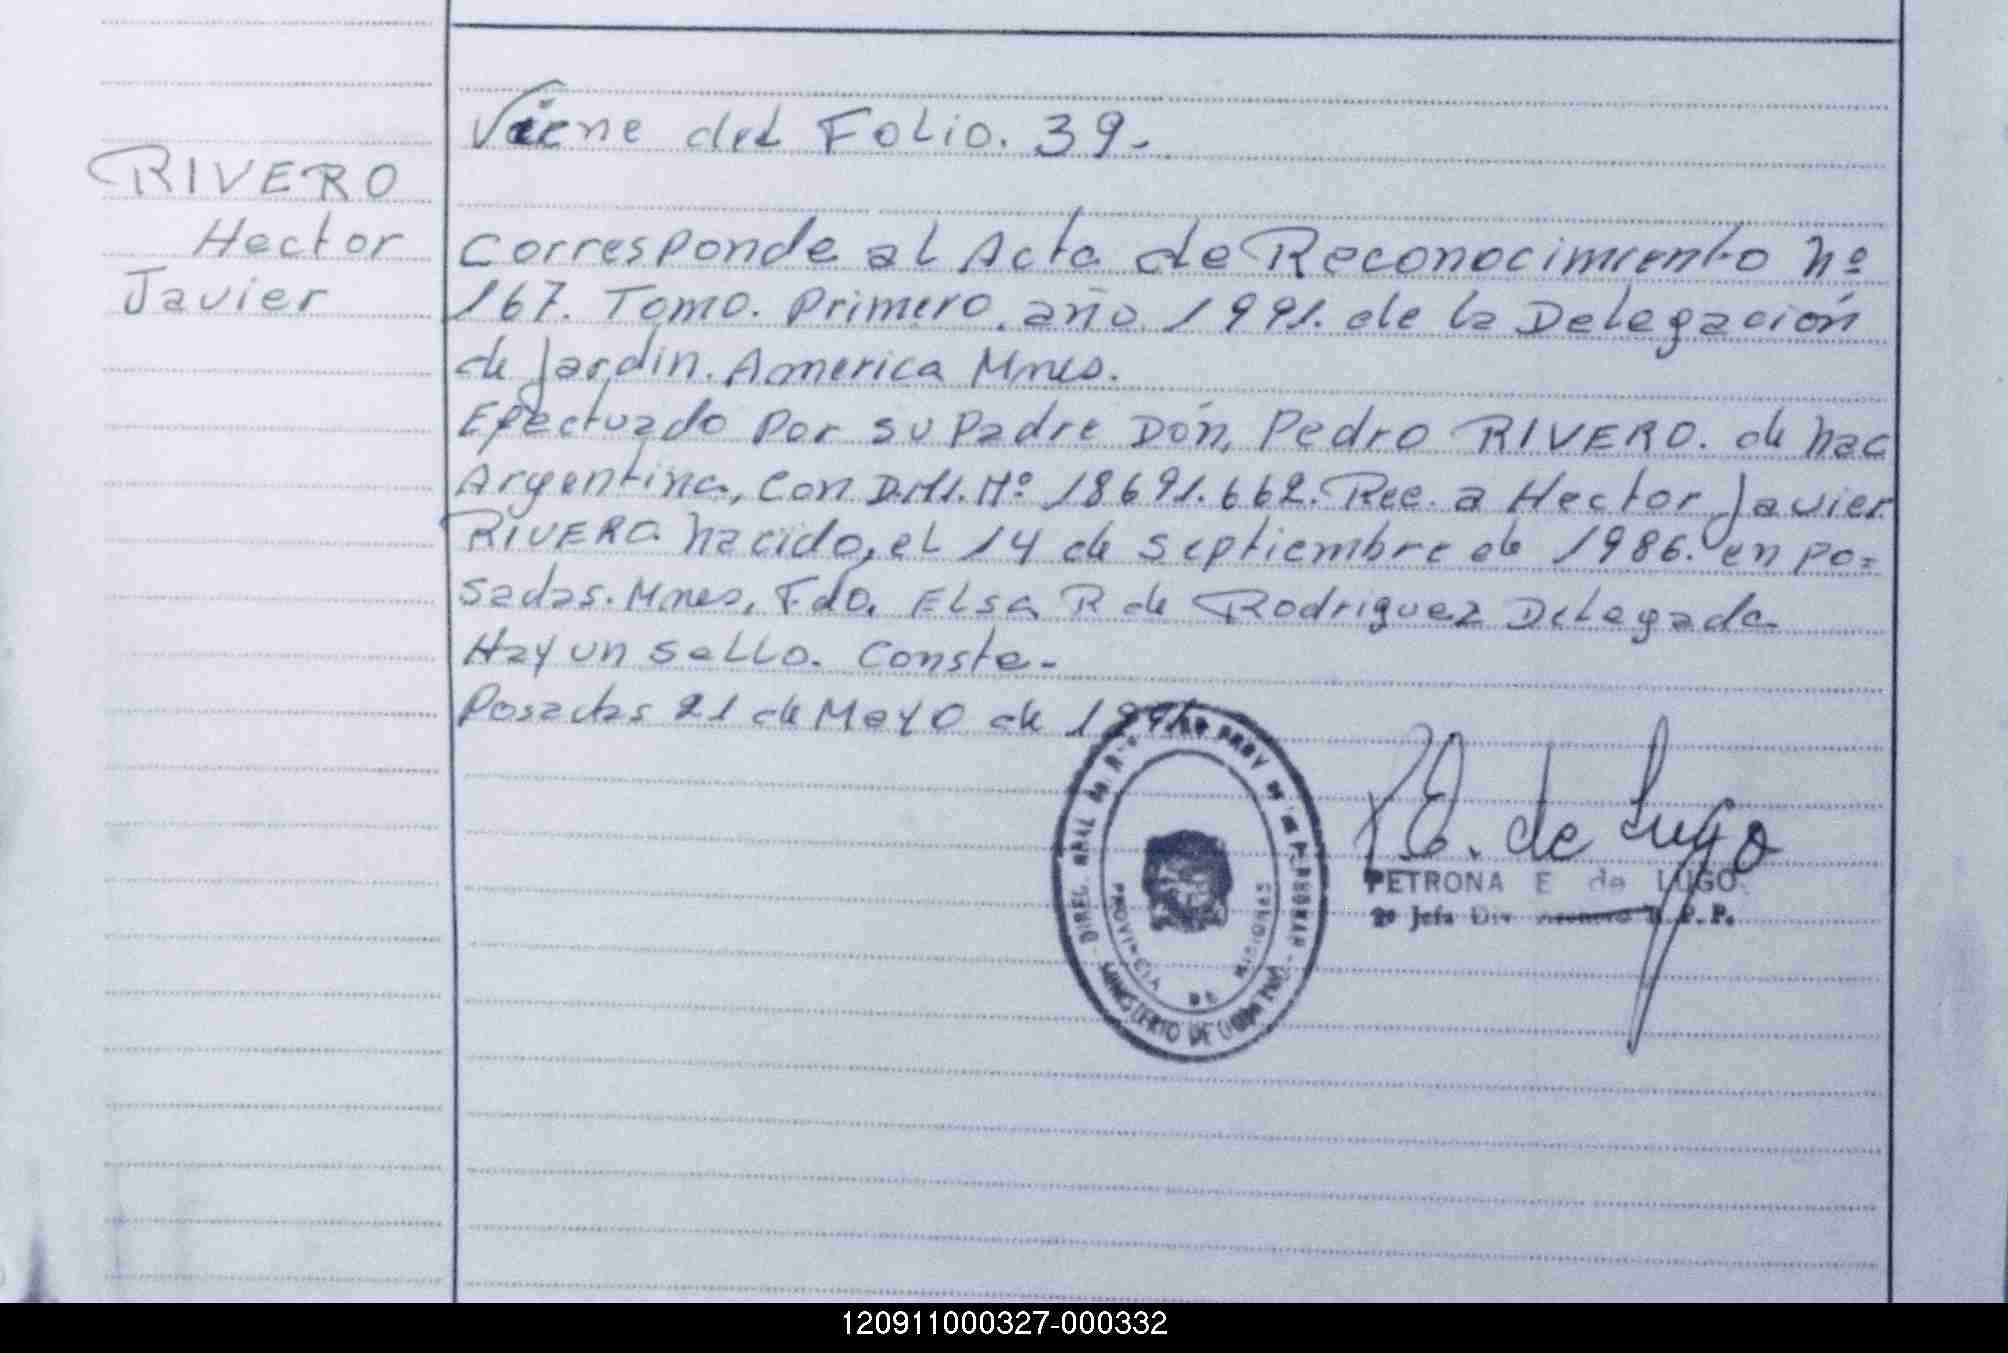 Viene del Folio. 39.-
RIVERO
Hector
Javier
Corresponde al Acta de Reconocimiento Nº
167. Tomo. Primero. año 1991. de la Delegación
de Jardin. America Mnes.
Efectuado Por su Padre Dón, Pedro RIVERO. de nac
Argentina, Con D.M.I. Nº 18691.662. Rec. a Hector Javier
RIVERO. nacido, el 14 de Septiembre de 1986. en Po=
sadas. Mnes, Fdo. Elsa R de Rodriguez Delegada
Hay un sello. Conste.-
Posadas 21 de Mayo de 1991
DIREC. GRAL DE PROV DE PERSONAS
PROVINCIA DE MISIONES
MINISTERIO DE GOBIERNO
P.E. de Lugo
PETRONA E de LUGO
2º Jefa Div P. P.
120911000327-000332